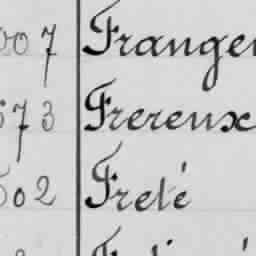 007 Franger
573 Frereux
502 Freté